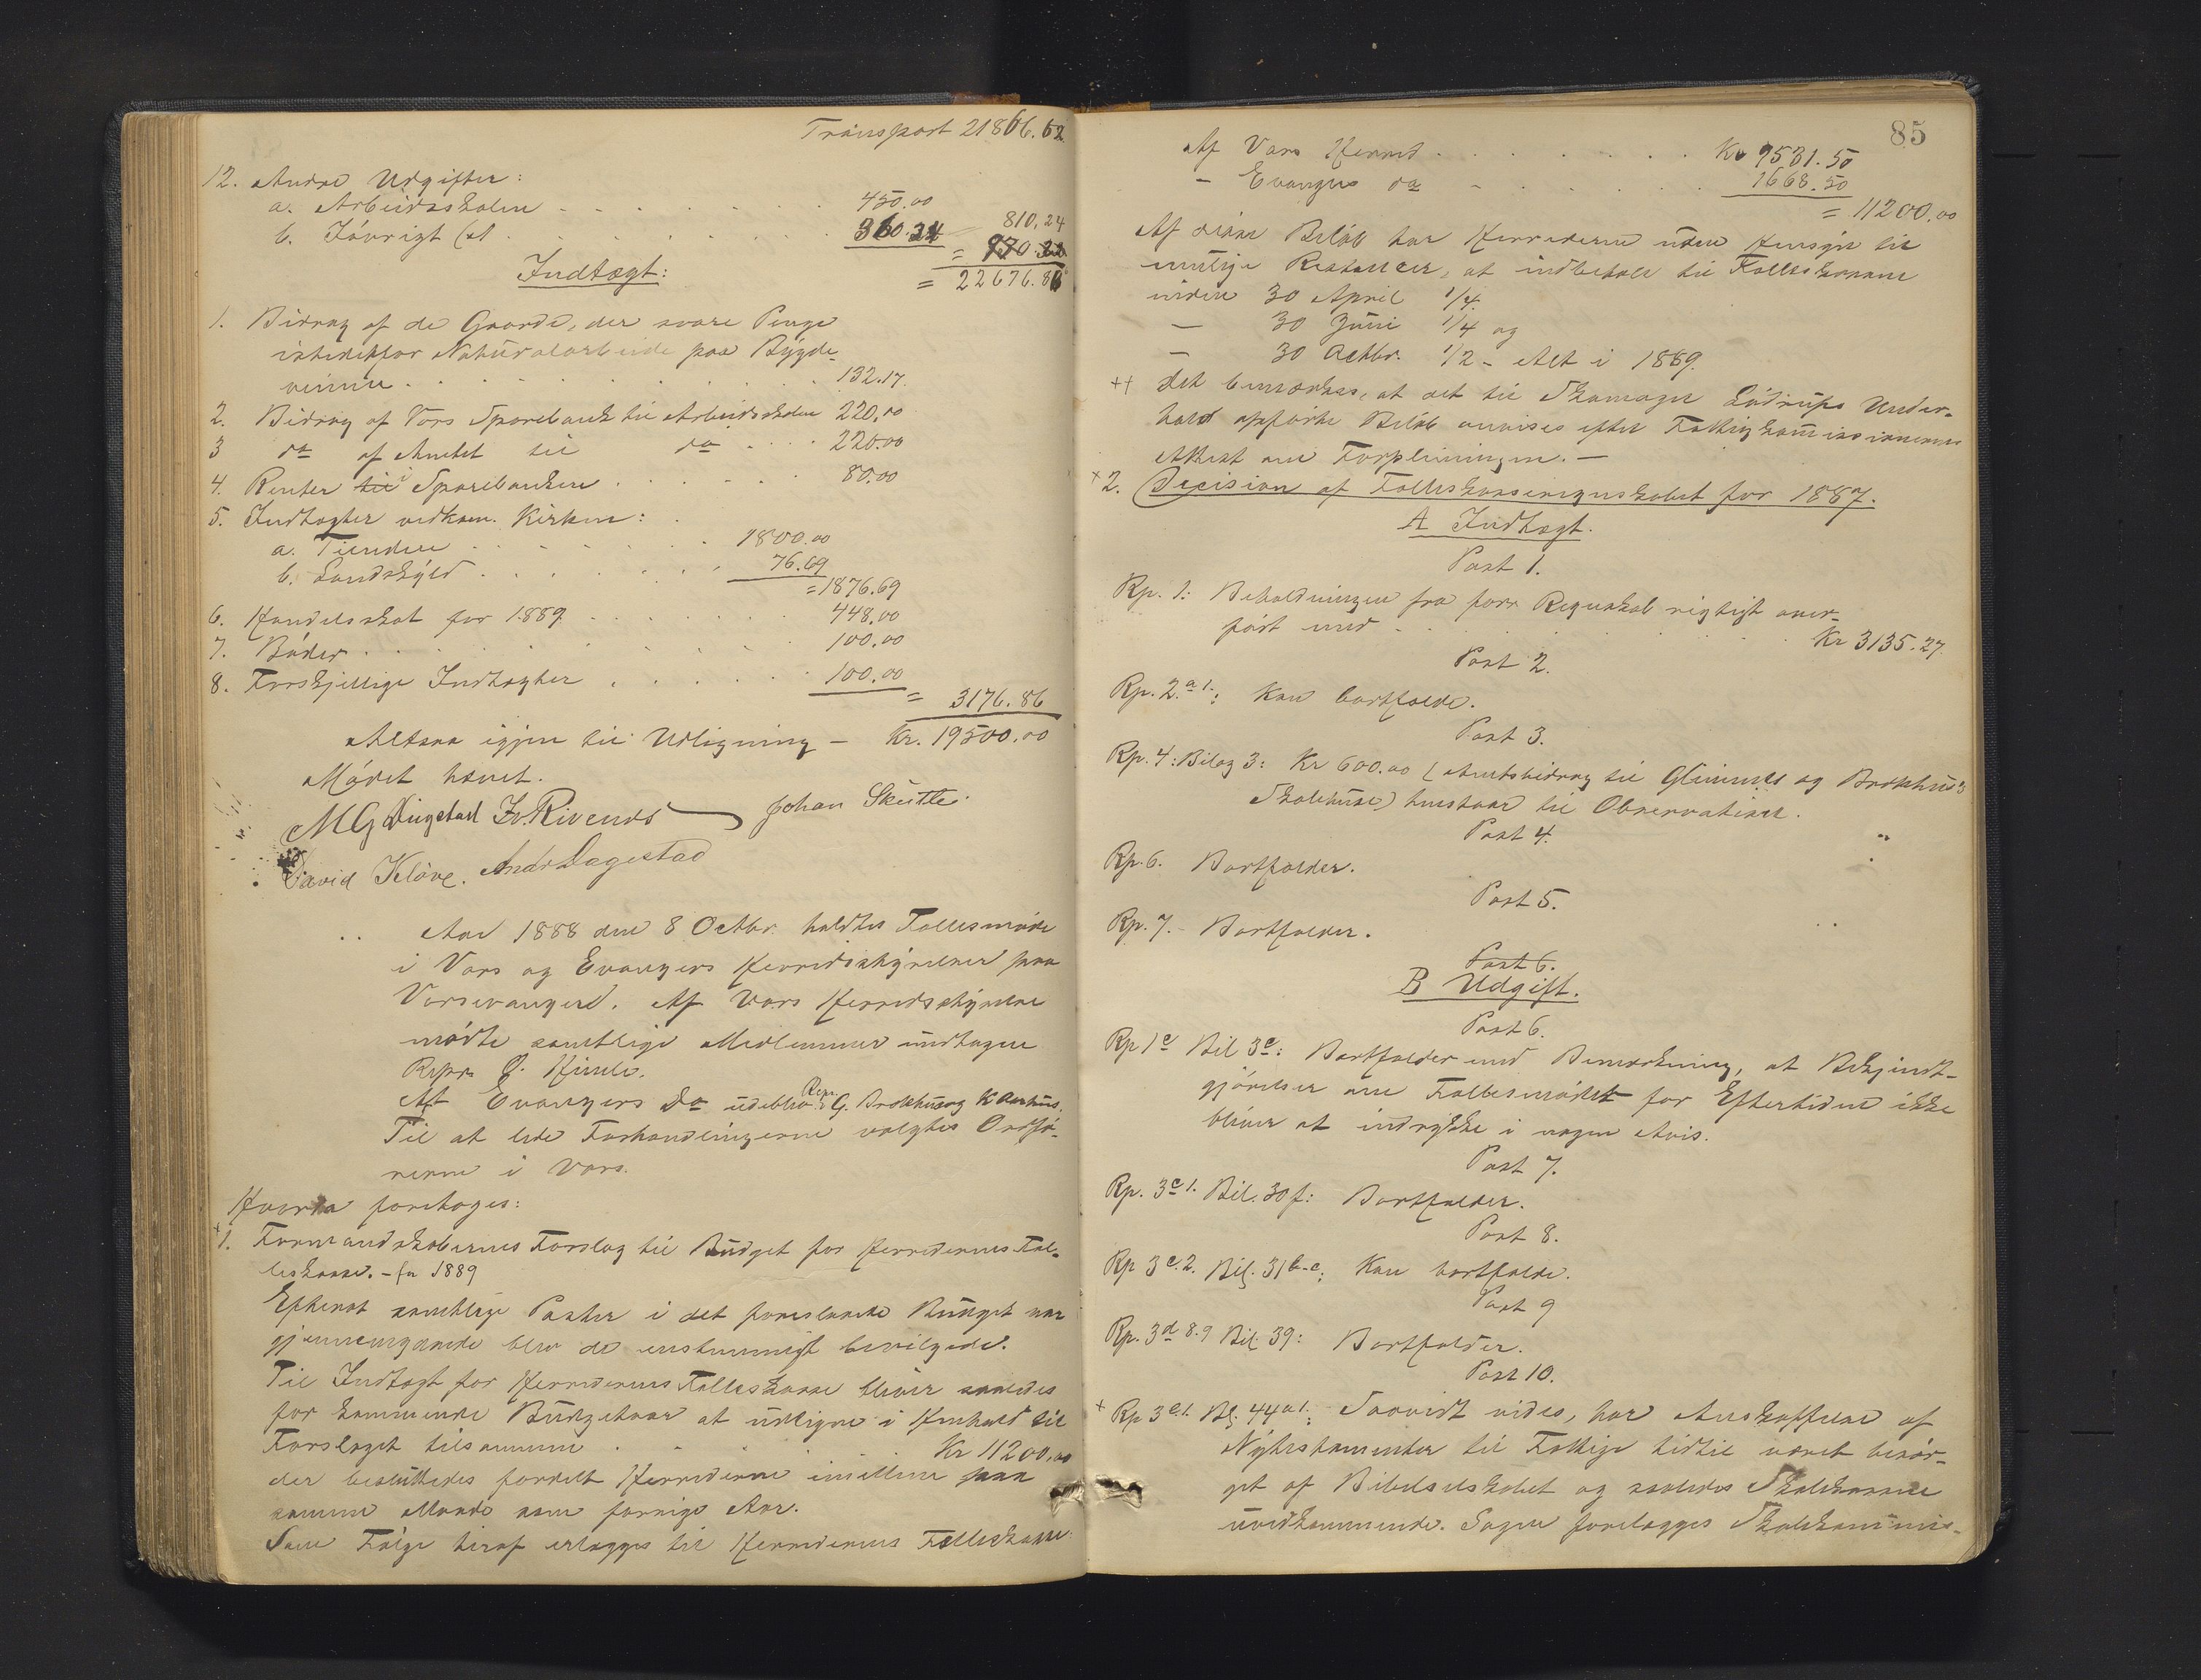 Transport 21866.62
12. Andre Udgifter:
a. Arbeidsskolen . . . 450.00
b. Iøvrigt . . . 360.24 810.24
=
Indtægt: = 22676.86
1. Bidrag af de Gaarde, der svare Penge
istedetfor Naturalarbeide paa Bygde-
veiene . . . 132.17.
2. Bidrag af Vors Sparebank til Arbeidsskolen 220.00
3 do af Amtet til do . . . 220.00
4. Renter til i Sparebanken . . . 80.00
5. Indtægter vedkom. Kirken:
a. Tienden . . . 1800.00
b. Landskyld . . . 76.69
= 1876.69
6. Handelsskat for 1889 . . . 448.00
7. Bøder . . . 100.00
8. Forskjellige Indtægter . . . 100.00
= 3176.86
Altsaa igjen til Udligning – Kr. 19500.00
Mødet hævet.
Johan Skutle.
David Kløve. Andr Dagestad
Aar 1888 den 8 Octbr. holdtes Fællesmøde
i Vors og Evangers Herredsstyrelser paa
Vossevangen. Af Vors Herredsstyrelse
mødte samtlige Medlemmer undtagen
Repr. O. Himle.
Af Evangers Do udeblev Repr. G. Brekhus og K Aarhus.
Til at lede Forhandlingerne valgtes Ordfø-
reren i Vors.
Hvorda foretoges:
1. Formandskabernes Forslag til Budget for Herredernes Fæl-
leskasse. – for 1889
Efterat samtlige Poster i det foreslaaede Budget var
gjennemgaaede blev de enstemmigt bevilgede.
Til Indtægt for Herredernes Fælleskasse bliver saaledes
for kommende Budgetaar at udligne i Henhold til
Forslaget tilsammen . . . Kr 11200.00
der besluttedes fordelt Herrederne imellem paa
samme Maade som forrige Aar.
Som Følge heraf erlægges til Herredernes Fælleskasse:
85
Af Vors Herred . . . Kr 9531.50
– Evangers do – . . . 1668.50
= 11200.00
Af disse Beløb har Herrederne uden Hensyn til
mulige Restancer, at indbetale til Fælleskassen
inden 30 April 1/4.
— 30 Juni 1/4 og
— 30 Octbr. 1/2 – Alt i 1889.
++ Det bemærkes, at det til Skomager Endrups Under-
hold opførte Beløb anvises efter Fattigkommissionernes
Attest om Forpleiningen. –
+2. Decision af Fælleskasseregnskabet for 1887.
A Indtægt.
Post 1.
Rp. 1: Beholdningen fra forr. Regnskab rigtigt over-
ført med . . . Kr 3135.27.
Post 2.
Rp. 2.a1.: Kan bortfalde.
Post 3.
Rp. 4: Bilag 3: Kr 600.00 (Amtsbidrag til Glimmes og Brekhus's
Skolehuse) henstaar til Observation.
Post 4.
Rp. 6. Bortfalder.
Post 5.
Rp. 7. – Bortfalder.
Post 6.
B Udgift.
Post 6.
Rp 1e Bil 3e: Bortfalder med Bemærkning, at Bekjendt-
gjørelser om Fællesmødet for Eftertiden ikke
bliver at indrykke i nogen Avis.
Post 7.
Rp. 3c1. Bil. 30f: Bortfalder.
Post 8.
Rp 3c.2. Bil. 31b-c: Kan bortfalde.
Post 9
Rp. 3d 8.9 Bil 39: Bortfalder.
Post 10.
+ Rp 3e.1. Bil. 44a1: Saavidt vides, har Anskaffelse af
Nytestamenter til Fattige hidtil været besør-
get af Bibelselskabet og saaledes Skolekassen
uvedkommende. Sagen forelægges Skolekommis-